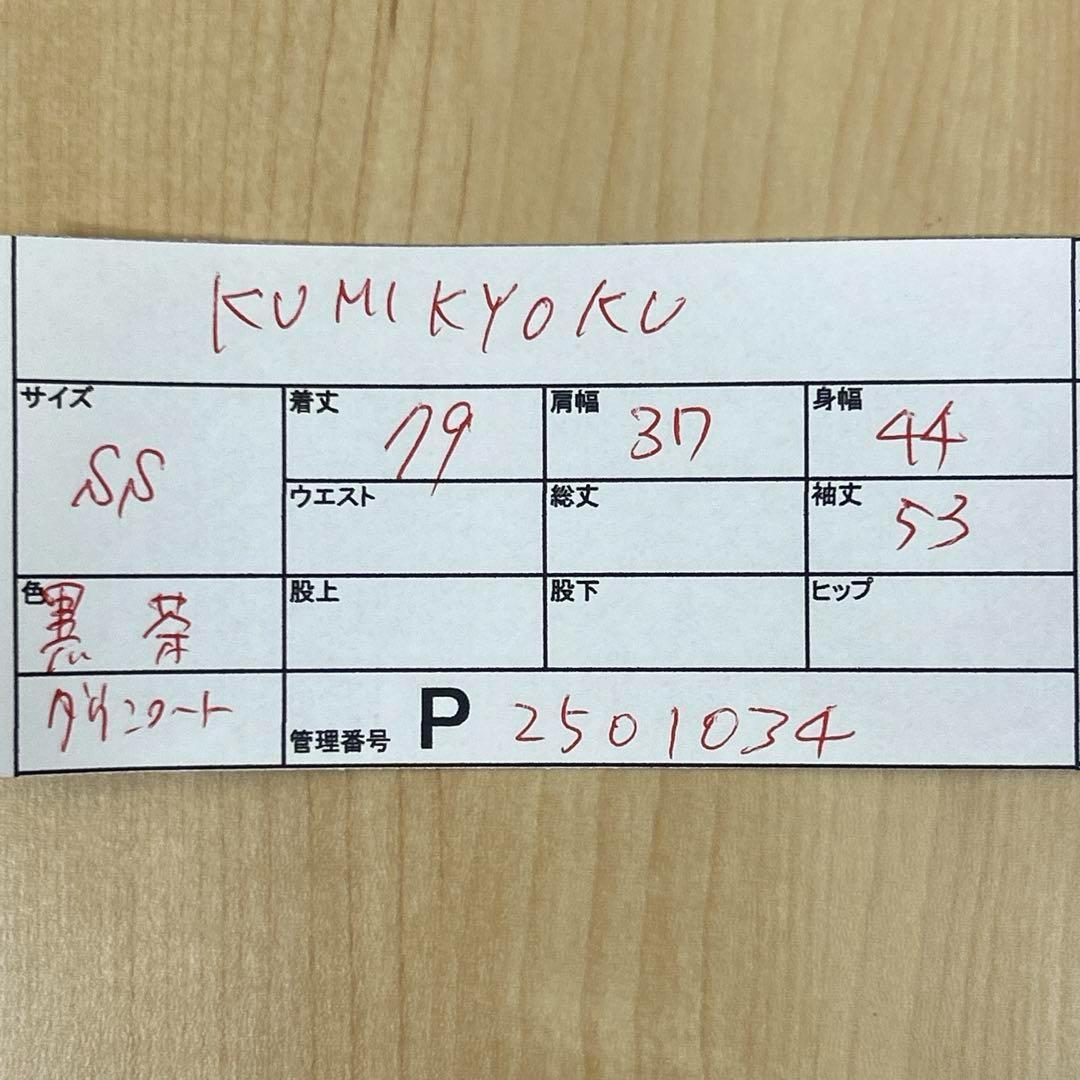 KUMIKYOKU
サイズ 着丈 79 肩幅 37 身幅 44
SS ウエスト 総丈 袖丈 53
色 黒 茶 股上 股下 ヒップ
ダウンコート 管理番号 P 2501034